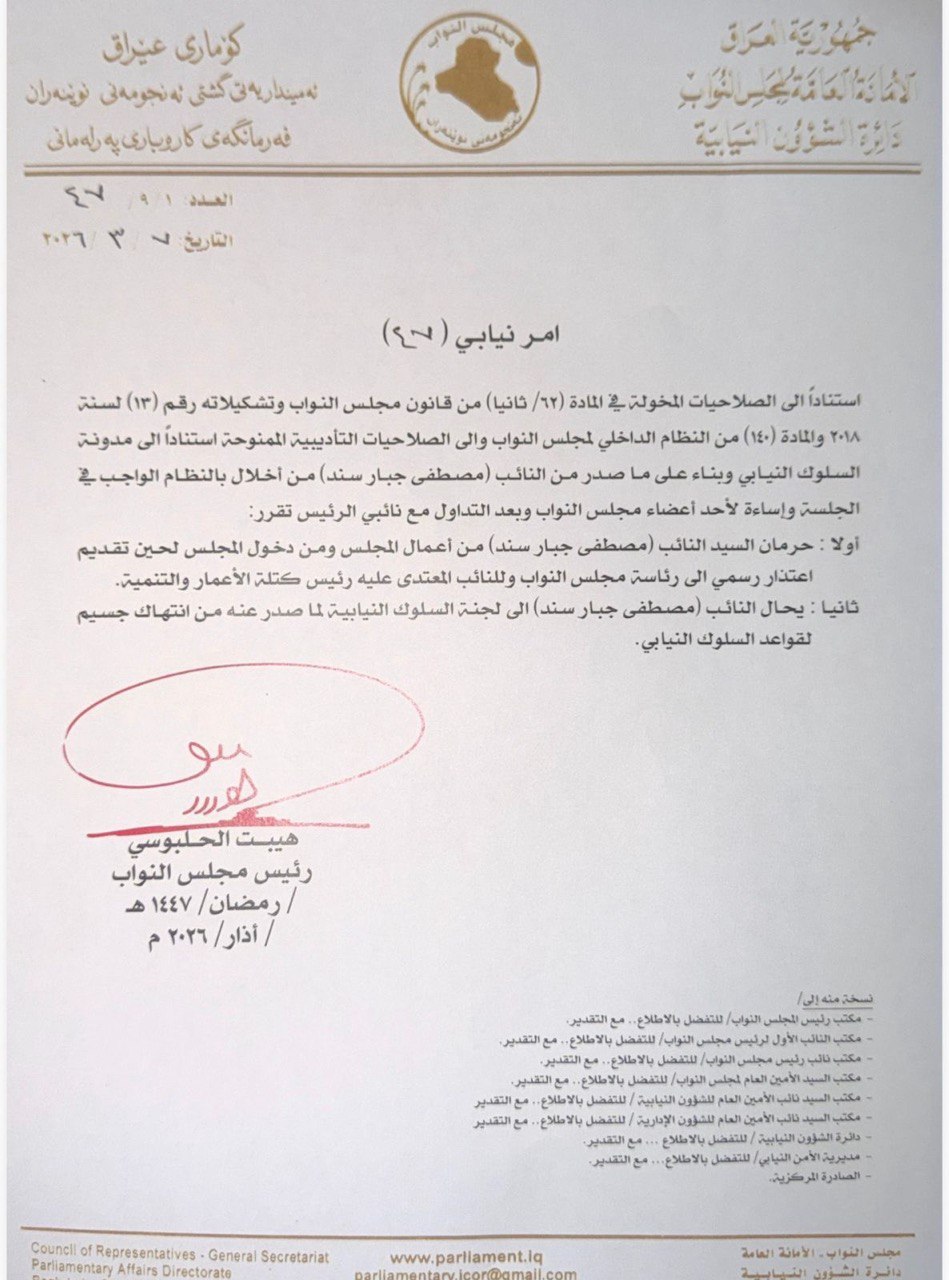 جمهورية العراق
الأمانة العامة لمجلس النواب
دائرة الشؤون النيابية
مجلس النواب
ئەنجومەنی نوێنەران
كۆماری عێراق
ئەمینداریەتی گشتی ئەنجومەنی نوێنەران
فەرمانگەی كاروباری پەرلەمانی
العدد: ١ / ٩ / ٤٧
التاريخ: ٧ / ٣ / ٢٠٢٦
امر نيابي (٤٧)
استناداً الى الصلاحيات المخولة في المادة (٦٢/ ثانيا) من قانون مجلس النواب وتشكيلاته رقم (١٣) لسنة
٢٠١٨ والمادة (١٤٠) من النظام الداخلي لمجلس النواب والى الصلاحيات التأديبية الممنوحة استناداً الى مدونة
السلوك النيابي وبناء على ما صدر من النائب (مصطفى جبار سند) من أخلال بالنظام الواجب في
الجلسة وإساءة لأحد أعضاء مجلس النواب وبعد التداول مع نائبي الرئيس تقرر:
أولا : حرمان السيد النائب (مصطفى جبار سند) من أعمال المجلس ومن دخول المجلس لحين تقديم
اعتذار رسمي الى رئاسة مجلس النواب وللنائب المعتدى عليه رئيس كتلة الأعمار والتنمية.
ثانيا : يحال النائب (مصطفى جبار سند) الى لجنة السلوك النيابية لما صدر عنه من انتهاك جسيم
لقواعد السلوك النيابي.
هيبت الحلبوسي
رئيس مجلس النواب
/ رمضان/ ١٤٤٧ هـ
/ أذار/ ٢٠٢٦ م
نسخة منه إلى/
- مكتب رئيس المجلس النواب/ للتفضل بالاطلاع.. مع التقدير.
- مكتب النائب الأول لرئيس مجلس النواب/ للتفضل بالاطلاع.. مع التقدير.
- مكتب نائب رئيس مجلس النواب/ للتفضل بالاطلاع.. مع التقدير.
- مكتب السيد الأمين العام لمجلس النواب/ للتفضل بالاطلاع.. مع التقدير.
- مكتب السيد نائب الأمين العام للشؤون النيابية / للتفضل بالاطلاع.. مع التقدير
- مكتب السيد نائب الأمين العام للشؤون الإدارية / للتفضل بالاطلاع.. مع التقدير
- دائرة الشؤون النيابية / للتفضل بالاطلاع ... مع التقدير.
- مديرية الأمن النيابي/ للتفضل بالاطلاع... مع التقدير.
- الصادرة المركزية.
مجلس النواب - الأمانة العامة
دائرة الشؤون النيابية
www.parliament.iq
parliamentary.icor@gmail.com
Council of Representatives - General Secretariat
Parliamentary Affairs Directorate